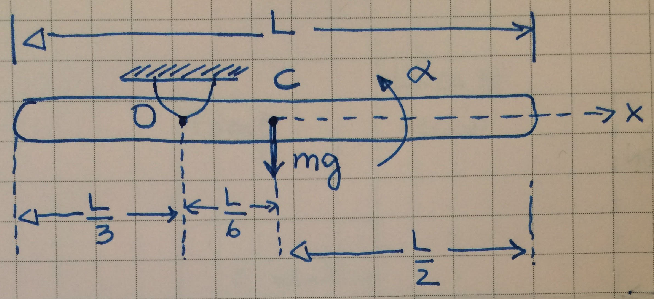 L
C
α
O
x
mg
L/3
L/6
L/2